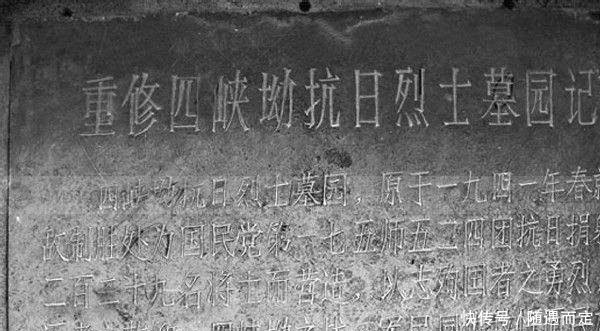 重修四峡坳抗日烈士墓园记
四峡坳抗日烈士墓园，原于一九四一年春
故制胜处为国民党第一七五师五二四团抗日捐躯
二百二十九名将士而营造，以志殉国者之勇烈
快传号 / 随遇而定